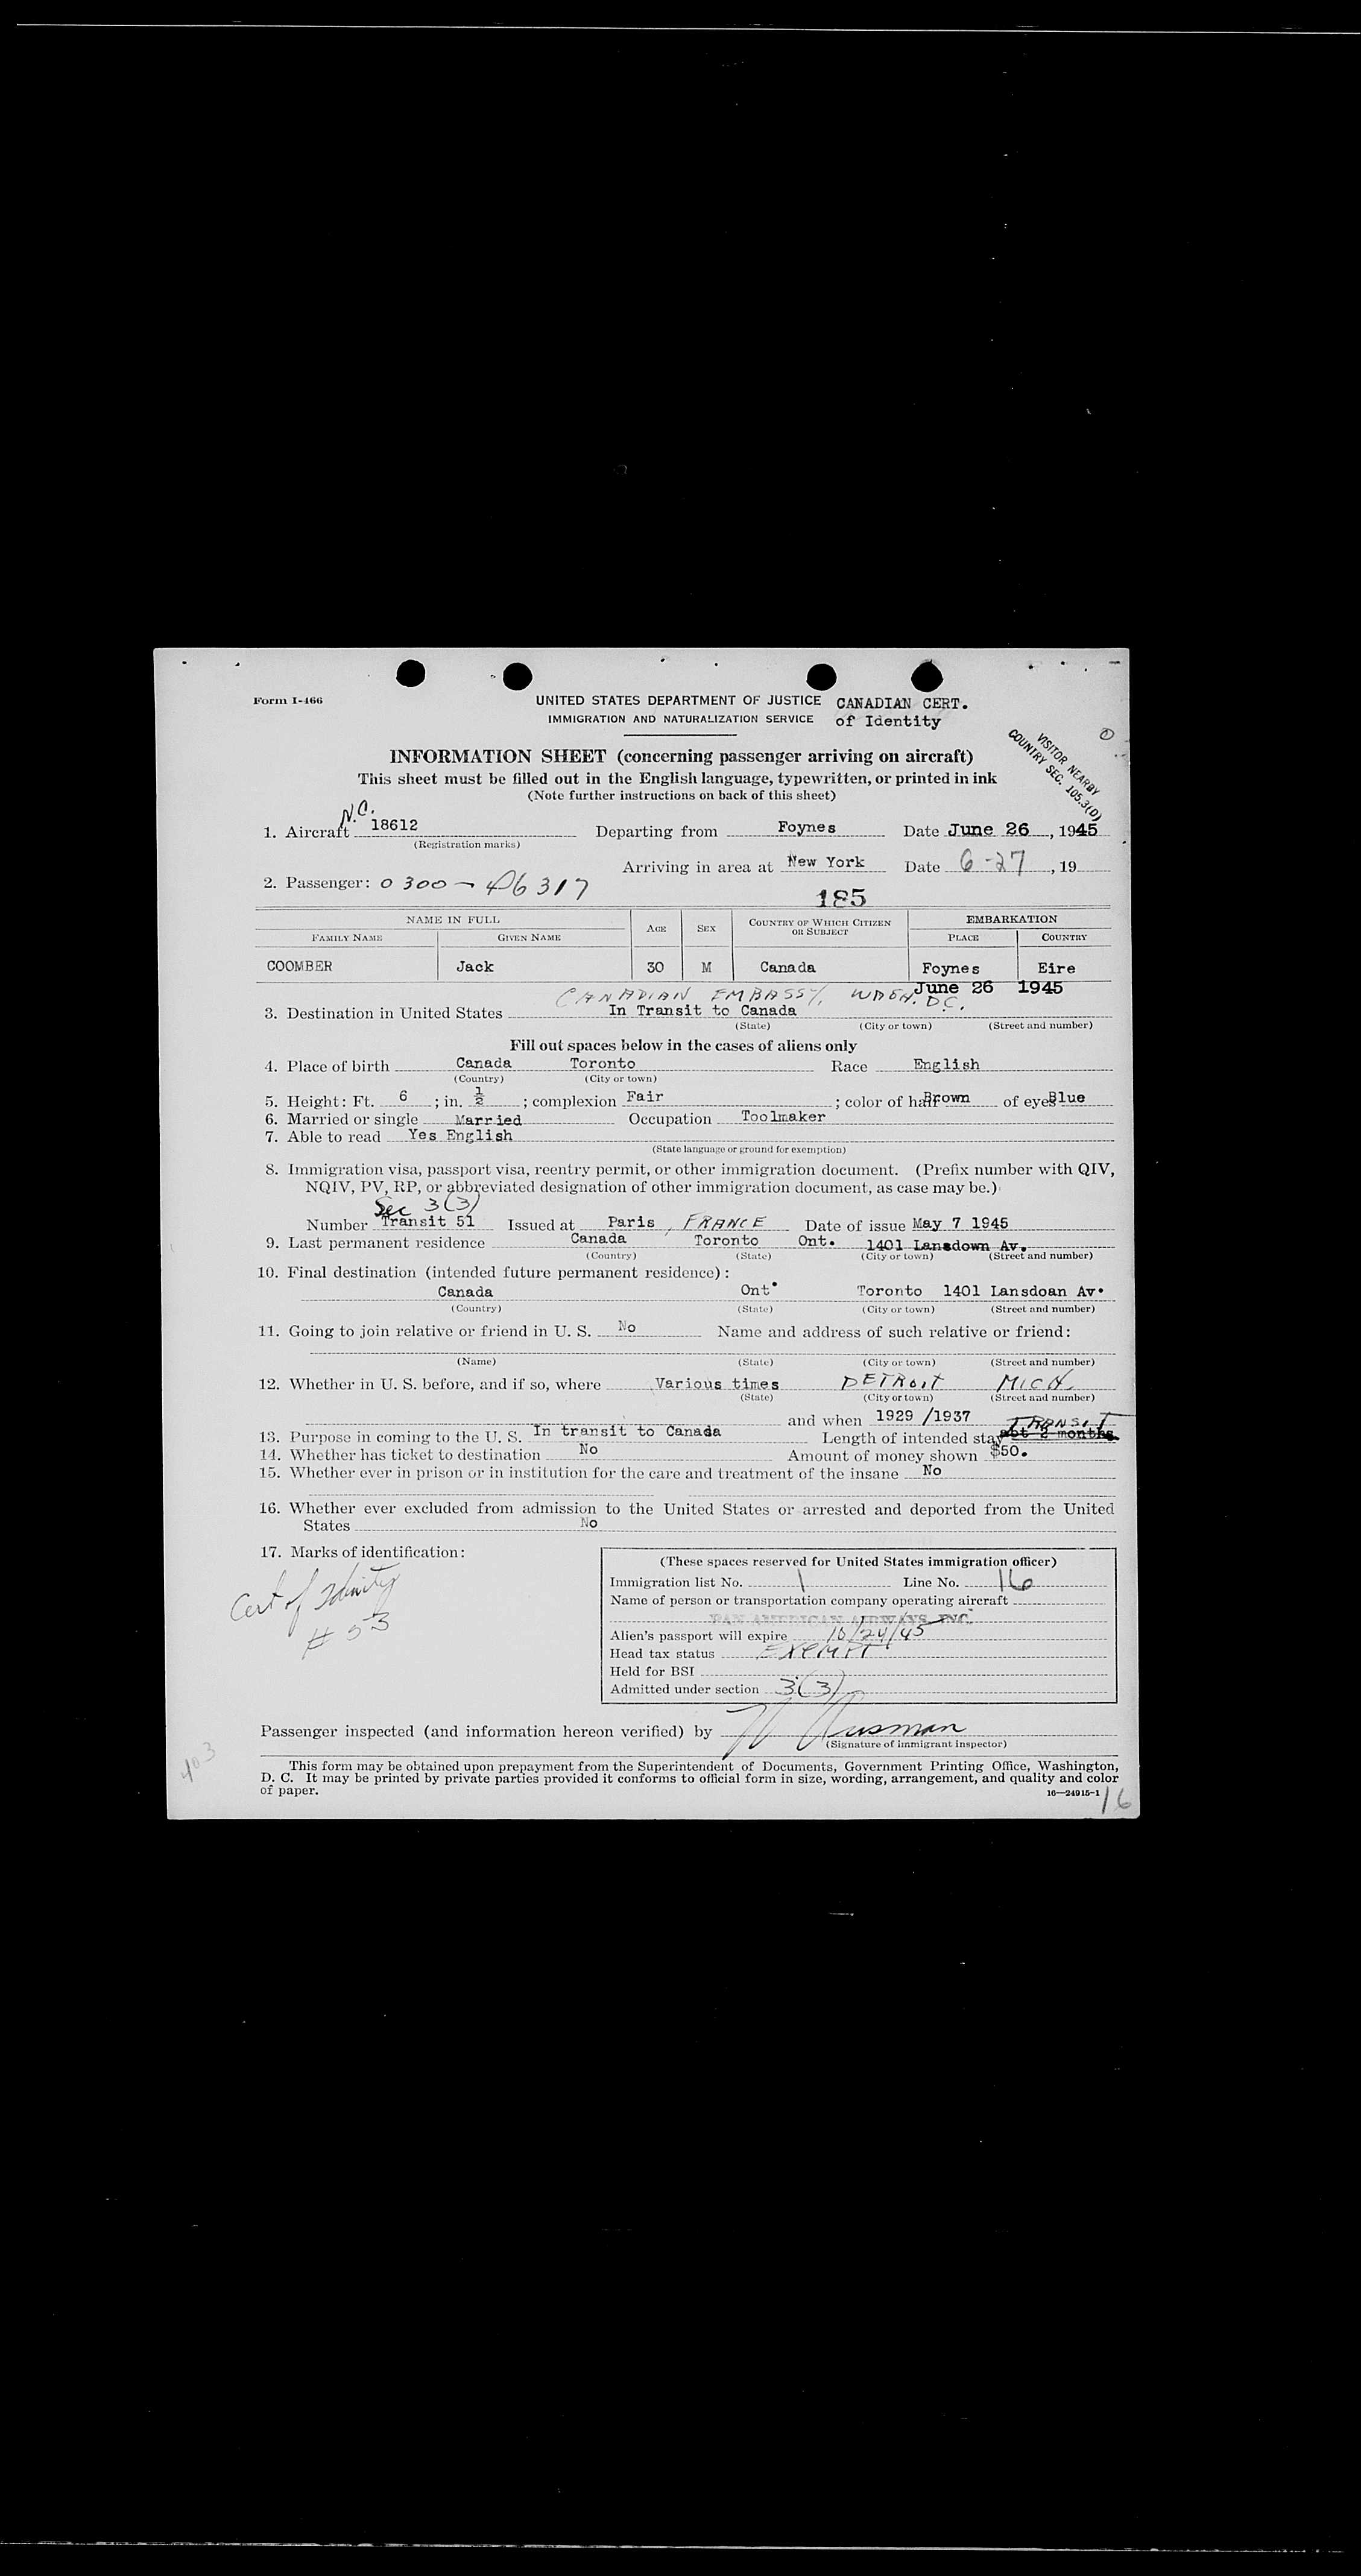 Form I-466
UNITED STATES DEPARTMENT OF JUSTICE CANADIAN CERT.
IMMIGRATION AND NATURALIZATION SERVICE of Identity
VISITOR NEARBY
COUNTRY SEC. 105.3(D)
INFORMATION SHEET (concerning passenger arriving on aircraft)
This sheet must be filled out in the English language, typewritten, or printed in ink
(Note further instructions on back of this sheet)
N.C.
1. Aircraft 18612 Departing from Foynes Date June 26, 1945
(Registration marks)
Arriving in area at New York Date 6-27, 19
2. Passenger: 0300-46317
185
NAME IN FULL AGE SEX COUNTRY OF WHICH CITIZEN OR SUBJECT EMBARKATION
FAMILY NAME GIVEN NAME PLACE COUNTRY
COOMBER Jack 30 M Canada Foynes Eire
June 26 1945
CANADIAN EMBASSY, WDSH. D.C.
3. Destination in United States In Transit to Canada
(State) (City or town) (Street and number)
Fill out spaces below in the cases of aliens only
4. Place of birth Canada Toronto Race English
(Country) (City or town)
5. Height: Ft. 6 ; in. ½ ; complexion Fair ; color of hair Brown of eyes Blue
6. Married or single Married Occupation Toolmaker
7. Able to read Yes English
(State language or ground for exemption)
8. Immigration visa, passport visa, reentry permit, or other immigration document. (Prefix number with QIV,
NQIV, PV, RP, or abbreviated designation of other immigration document, as case may be.)
Sec 3(3)
Number Transit 51 Issued at Paris, FRANCE Date of issue May 7 1945
9. Last permanent residence Canada Toronto Ont. 1401 Lansdown Av.
(Country) (State) (City or town) (Street and number)
10. Final destination (intended future permanent residence):
Canada Ont. Toronto 1401 Lansdoan Av.
(Country) (State) (City or town) (Street and number)
11. Going to join relative or friend in U. S. No Name and address of such relative or friend:
(Name) (State) (City or town) (Street and number)
12. Whether in U. S. before, and if so, where Various times DETROIT MICH.
(State) (City or town) (Street and number)
and when 1929 /1937
TRANSIT
13. Purpose in coming to the U. S. In transit to Canada Length of intended stay abt 2 months
14. Whether has ticket to destination No Amount of money shown $50.
15. Whether ever in prison or in institution for the care and treatment of the insane No
16. Whether ever excluded from admission to the United States or arrested and deported from the United
States No
17. Marks of identification:
Cert of Idenity
# 53
(These spaces reserved for United States immigration officer)
Immigration list No. 1 Line No. 16
Name of person or transportation company operating aircraft
PAN AMERICAN AIRWAYS INC.
Alien's passport will expire 10/24/45
Head tax status EXEMPT
Held for BSI
Admitted under section 3(3)
Passenger inspected (and information hereon verified) by
(Signature of immigrant inspector)
403
This form may be obtained upon prepayment from the Superintendent of Documents, Government Printing Office, Washington,
D. C. It may be printed by private parties provided it conforms to official form in size, wording, arrangement, and quality and color
of paper.
16—24915-1
16